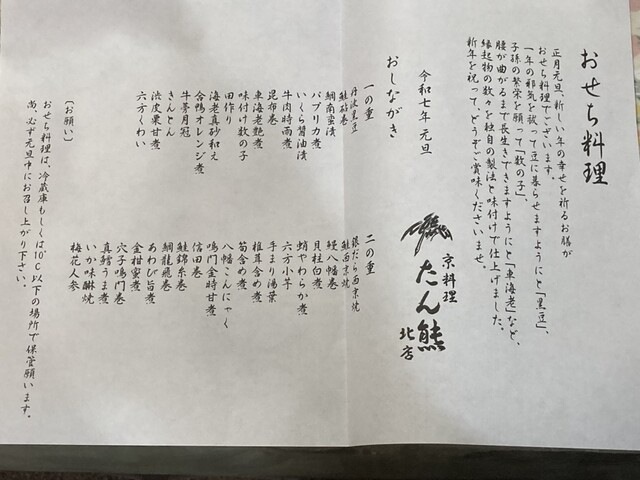 おせち料理
正月元旦、新しい年の幸せを祈るお膳が
おせち料理でございます。
一年の邪気を祓って豆に暮らせますようにと「黒豆」、
子孫の繁栄を願って「数の子」、
腰が曲がるまで長生きできますようにと「車海老」など、
縁起物の数々を独自の製法と味付けで仕上げました。
新年を祝って、どうぞご賞味くださいませ。
令和七年 元旦
京料理
たん熊
北店
おしながき
一の重
丹波黒豆
鮭砧巻
鯛南蛮漬
パプリカ煮
いくら醤油漬
牛肉時雨煮
昆布巻
車海老艶煮
味付け数の子
田作り
海老真砂和え
合鴨オレンジ煮
牛蒡月冠
きんとん
渋皮栗甘煮
六方くわい
二の重
銀だら西京焼
鮭西京焼
鰻八幡巻
貝柱白煮
蛸やわらか煮
六方小芋
手まり湯葉
椎茸含め煮
筍含め煮
八幡こんにゃく
鳴門金時甘煮
信田巻
鮭錦糸巻
鯛龍飛巻
あわび旨煮
金柑蜜煮
穴子鳴門巻
真鱈うま煮
いか味醂焼
梅花人参
〔お願い〕
おせち料理は、冷蔵庫もしくは10℃以下の場所で保管願います。
尚、必ず元旦中にお召し上がり下さい。